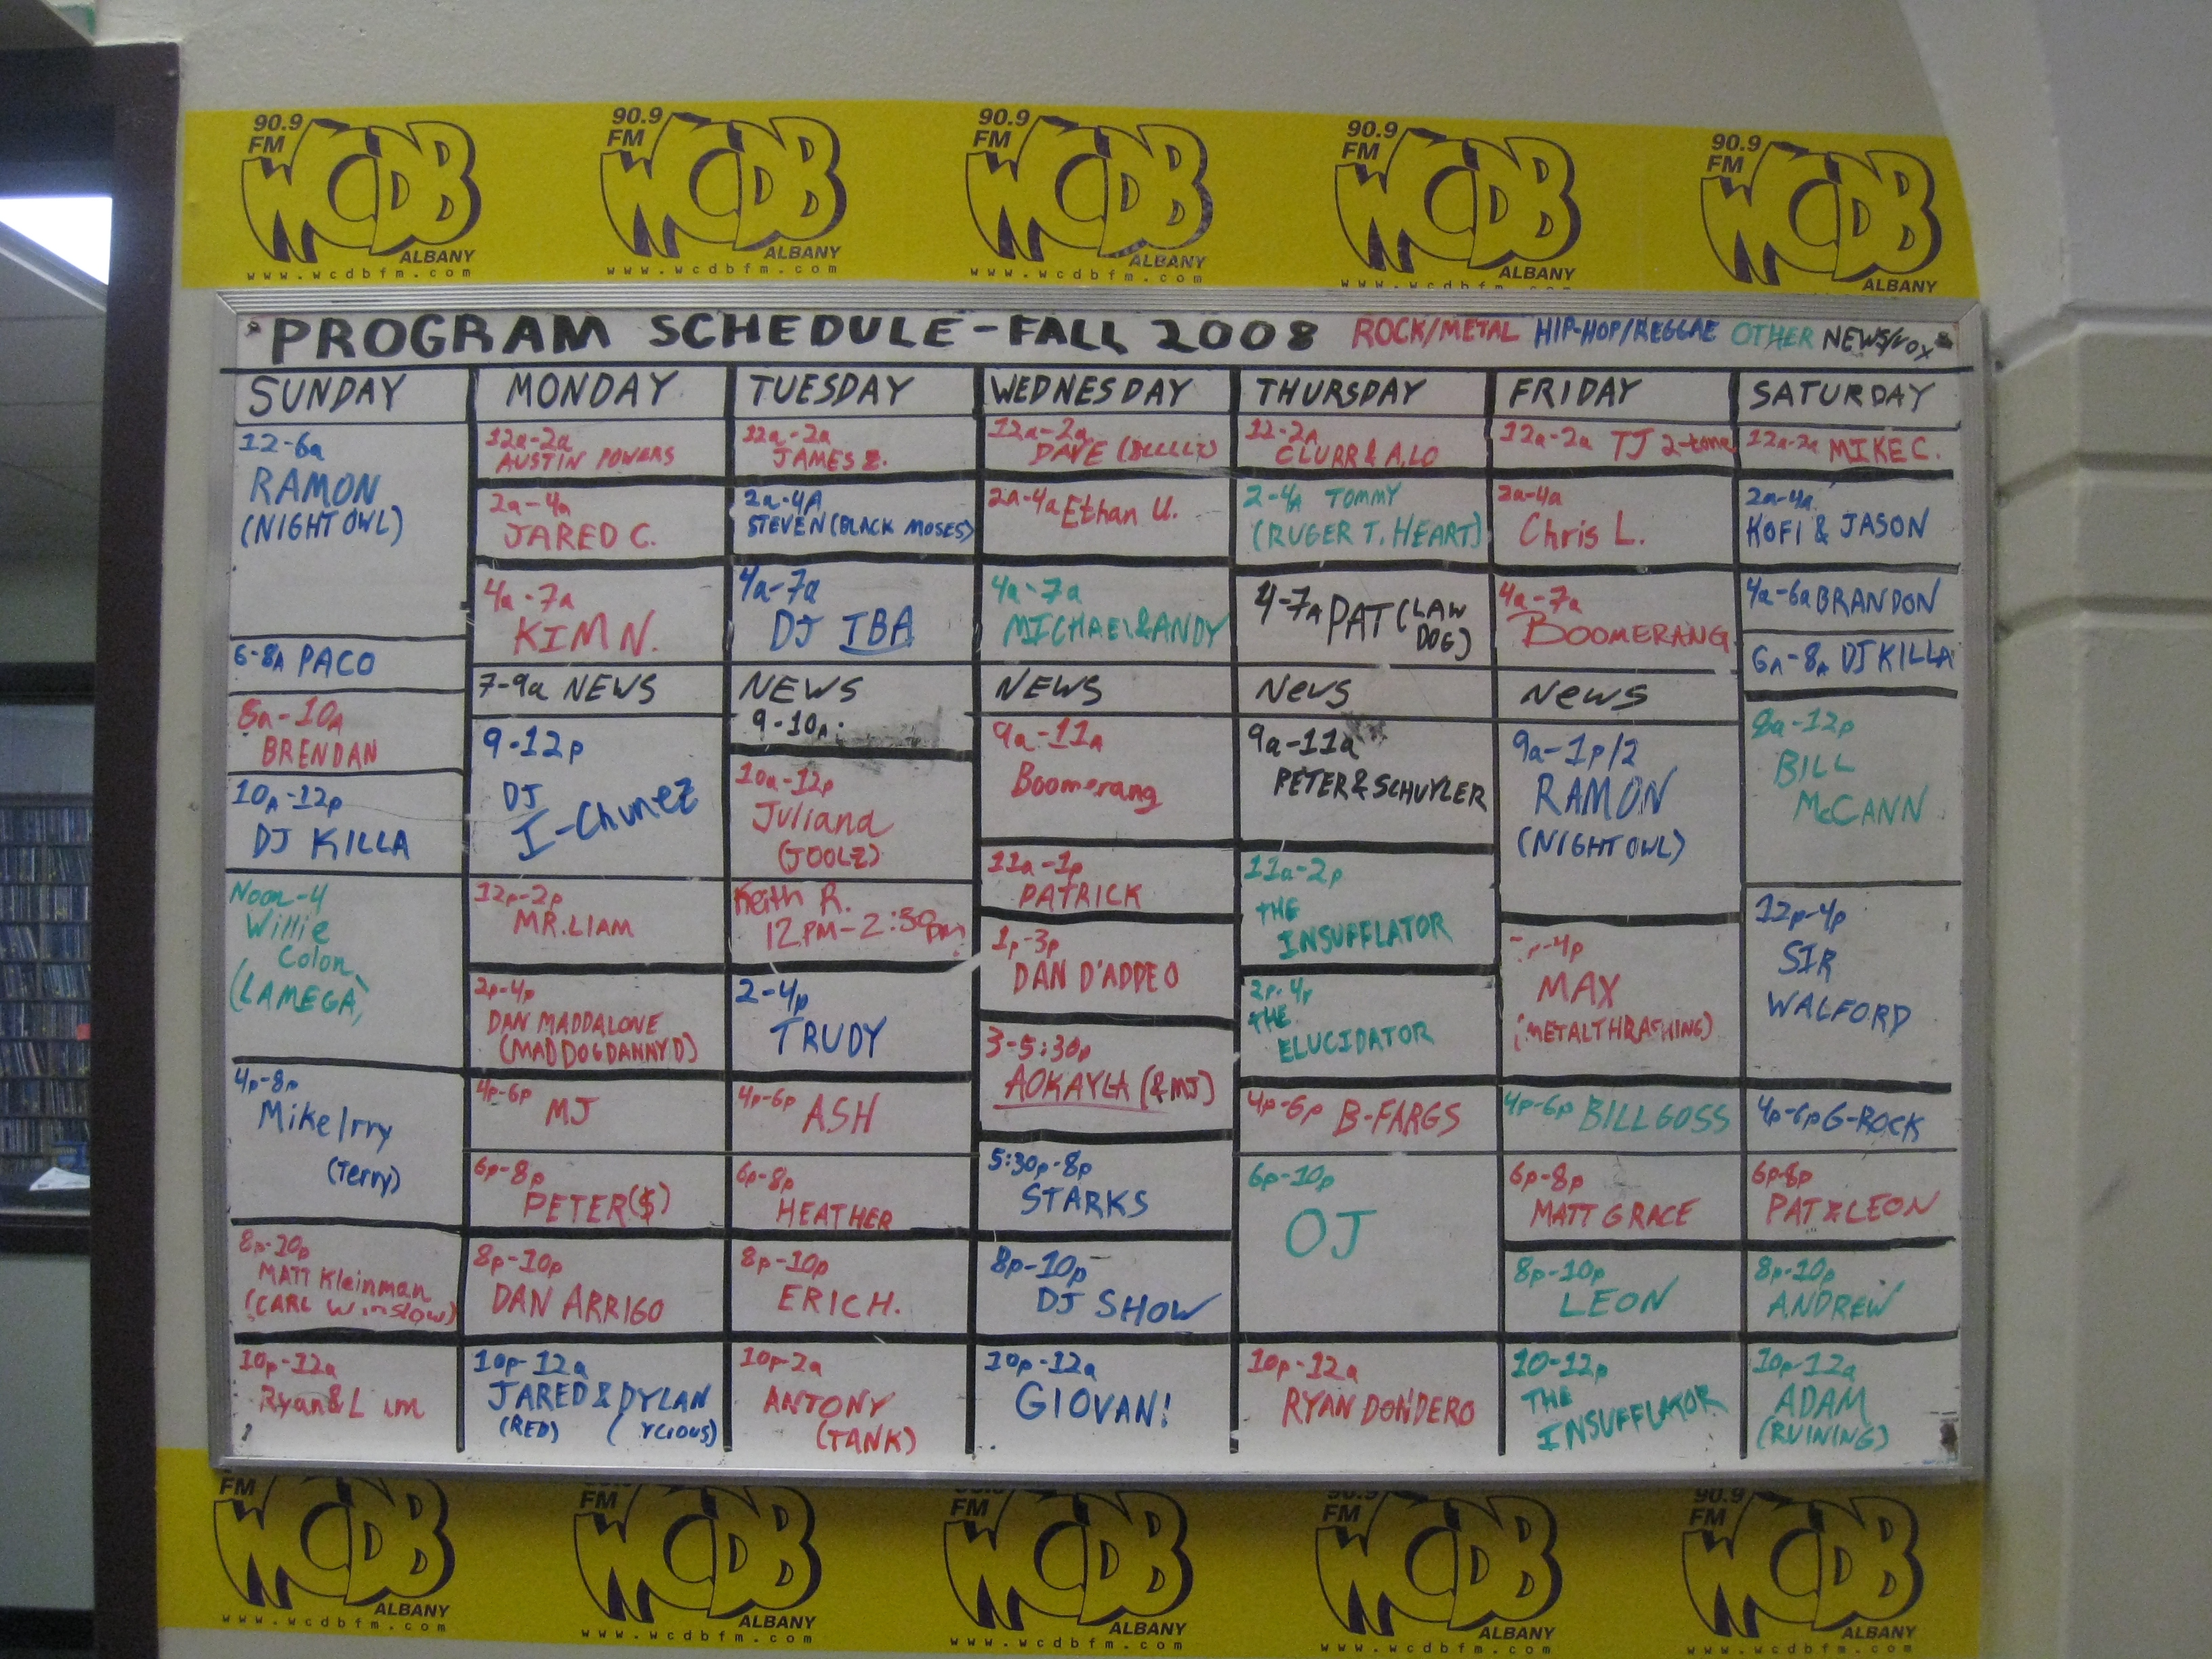 90.9
FM
WCDB
ALBANY
www.wcdbfm.com
90.9
FM
WCDB
ALBANY
www.wcdbfm.com
90.9
FM
WCDB
ALBANY
www.wcdbfm.com
90.9
FM
WCDB
ALBANY
www.wcdbfm.com
90.9
FM
WCDB
ALBANY
PROGRAM SCHEDULE - FALL 2008 ROCK/METAL HIP-HOP/REGGAE OTHER NEWS/VOX
SUNDAY
12-6a
RAMON
(NIGHT OWL)
6-8A PACO
8a-10A
BRENDAN
10A-12p
DJ KILLA
Noon-4
Willie
Colon
(LAMEGA)
4p-8p
Mike Irry
(Terry)
8p-10p
MATT Kleinman
(CARL Winslow)
10p-12a
Ryan &
MONDAY
12a-2a
AUSTIN POWERS
2a-4a
JARED C.
4a-7a
KIM N.
7-9a NEWS
9-12p
DJ
I-Chunez
12p-2p
MR. LIAM
2p-4p
DAN MADDALONE
(MAD DOG DANNY D)
4p-6p
MJ
6p-8p
PETER ($)
8p-10p
DAN ARRIGO
10p-12a
JARED & DYLAN
(RED)
TUESDAY
12a-2a
JAMES Z.
2a-4A
STEVEN (BLACK MOSES)
4a-7a
DJ TBA
NEWS
9-10A
10a-12p
Juliana
(JOOLZ)
Keith R.
12PM-2:30pm
2-4p
TRUDY
4p-6p ASH
6p-8p
HEATHER
8p-10p
ERIC H.
10p-2a
ANTONY
(TANK)
WEDNESDAY
12a-2a
DAVE
2a-4a Ethan U.
4a-7a
MICHAEL & ANDY
NEWS
9a-11a
Boomerang
11a-1p
PATRICK
1p-3p
DAN D'ADDEO
3-5:30p
AOKAYLA (& MJ)
5:30p-8p
STARKS
8p-10p
DJ SHOW
10p-12a
GIOVAN!
THURSDAY
12-2A
CLURR & A.LO
2-4A TOMMY
(RUGER T. HEART)
4-7A PAT (LAW
DOG)
News
9a-11a
PETER & SCHUYLER
11a-2p
THE
INSUFFLATOR
2p-4p
THE
ELUCIDATOR
4p-6p B-FARGS
6p-10p
OJ
10p-12a
RYAN DONDERO
FRIDAY
12a-2a TJ 2-tone
2a-4a
Chris L.
4a-7a
BOOMERANG
News
9a-1p/2
RAMON
(NIGHT OWL)
-4p
MAX
(METALTHRASHING)
4p-6p BILL GOSS
6p-8p
MATT GRACE
8p-10p
LEON
10-12p
THE
INSUFFLATOR
SATURDAY
12a-2a MIKE C.
2a-4a
KOFI & JASON
4a-6a BRANDON
6A-8A DJ KILLA
8a-12p
BILL
McCANN
12p-4p
SIR
WALFORD
4p-6p G-ROCK
6p-8p
PAT & LEON
8p-10p
ANDREW
10p-12a
ADAM
(RUINING)
FM
WCDB
ALBANY
www.wcdbfm.com
FM
WCDB
ALBANY
www.wcdbfm.com
FM
WCDB
ALBANY
www.wcdbfm.com
90.9
FM
WCDB
ALBANY
www.wcdbfm.com
90.9
FM
WCDB
ALBANY
www.wcdbfm.com